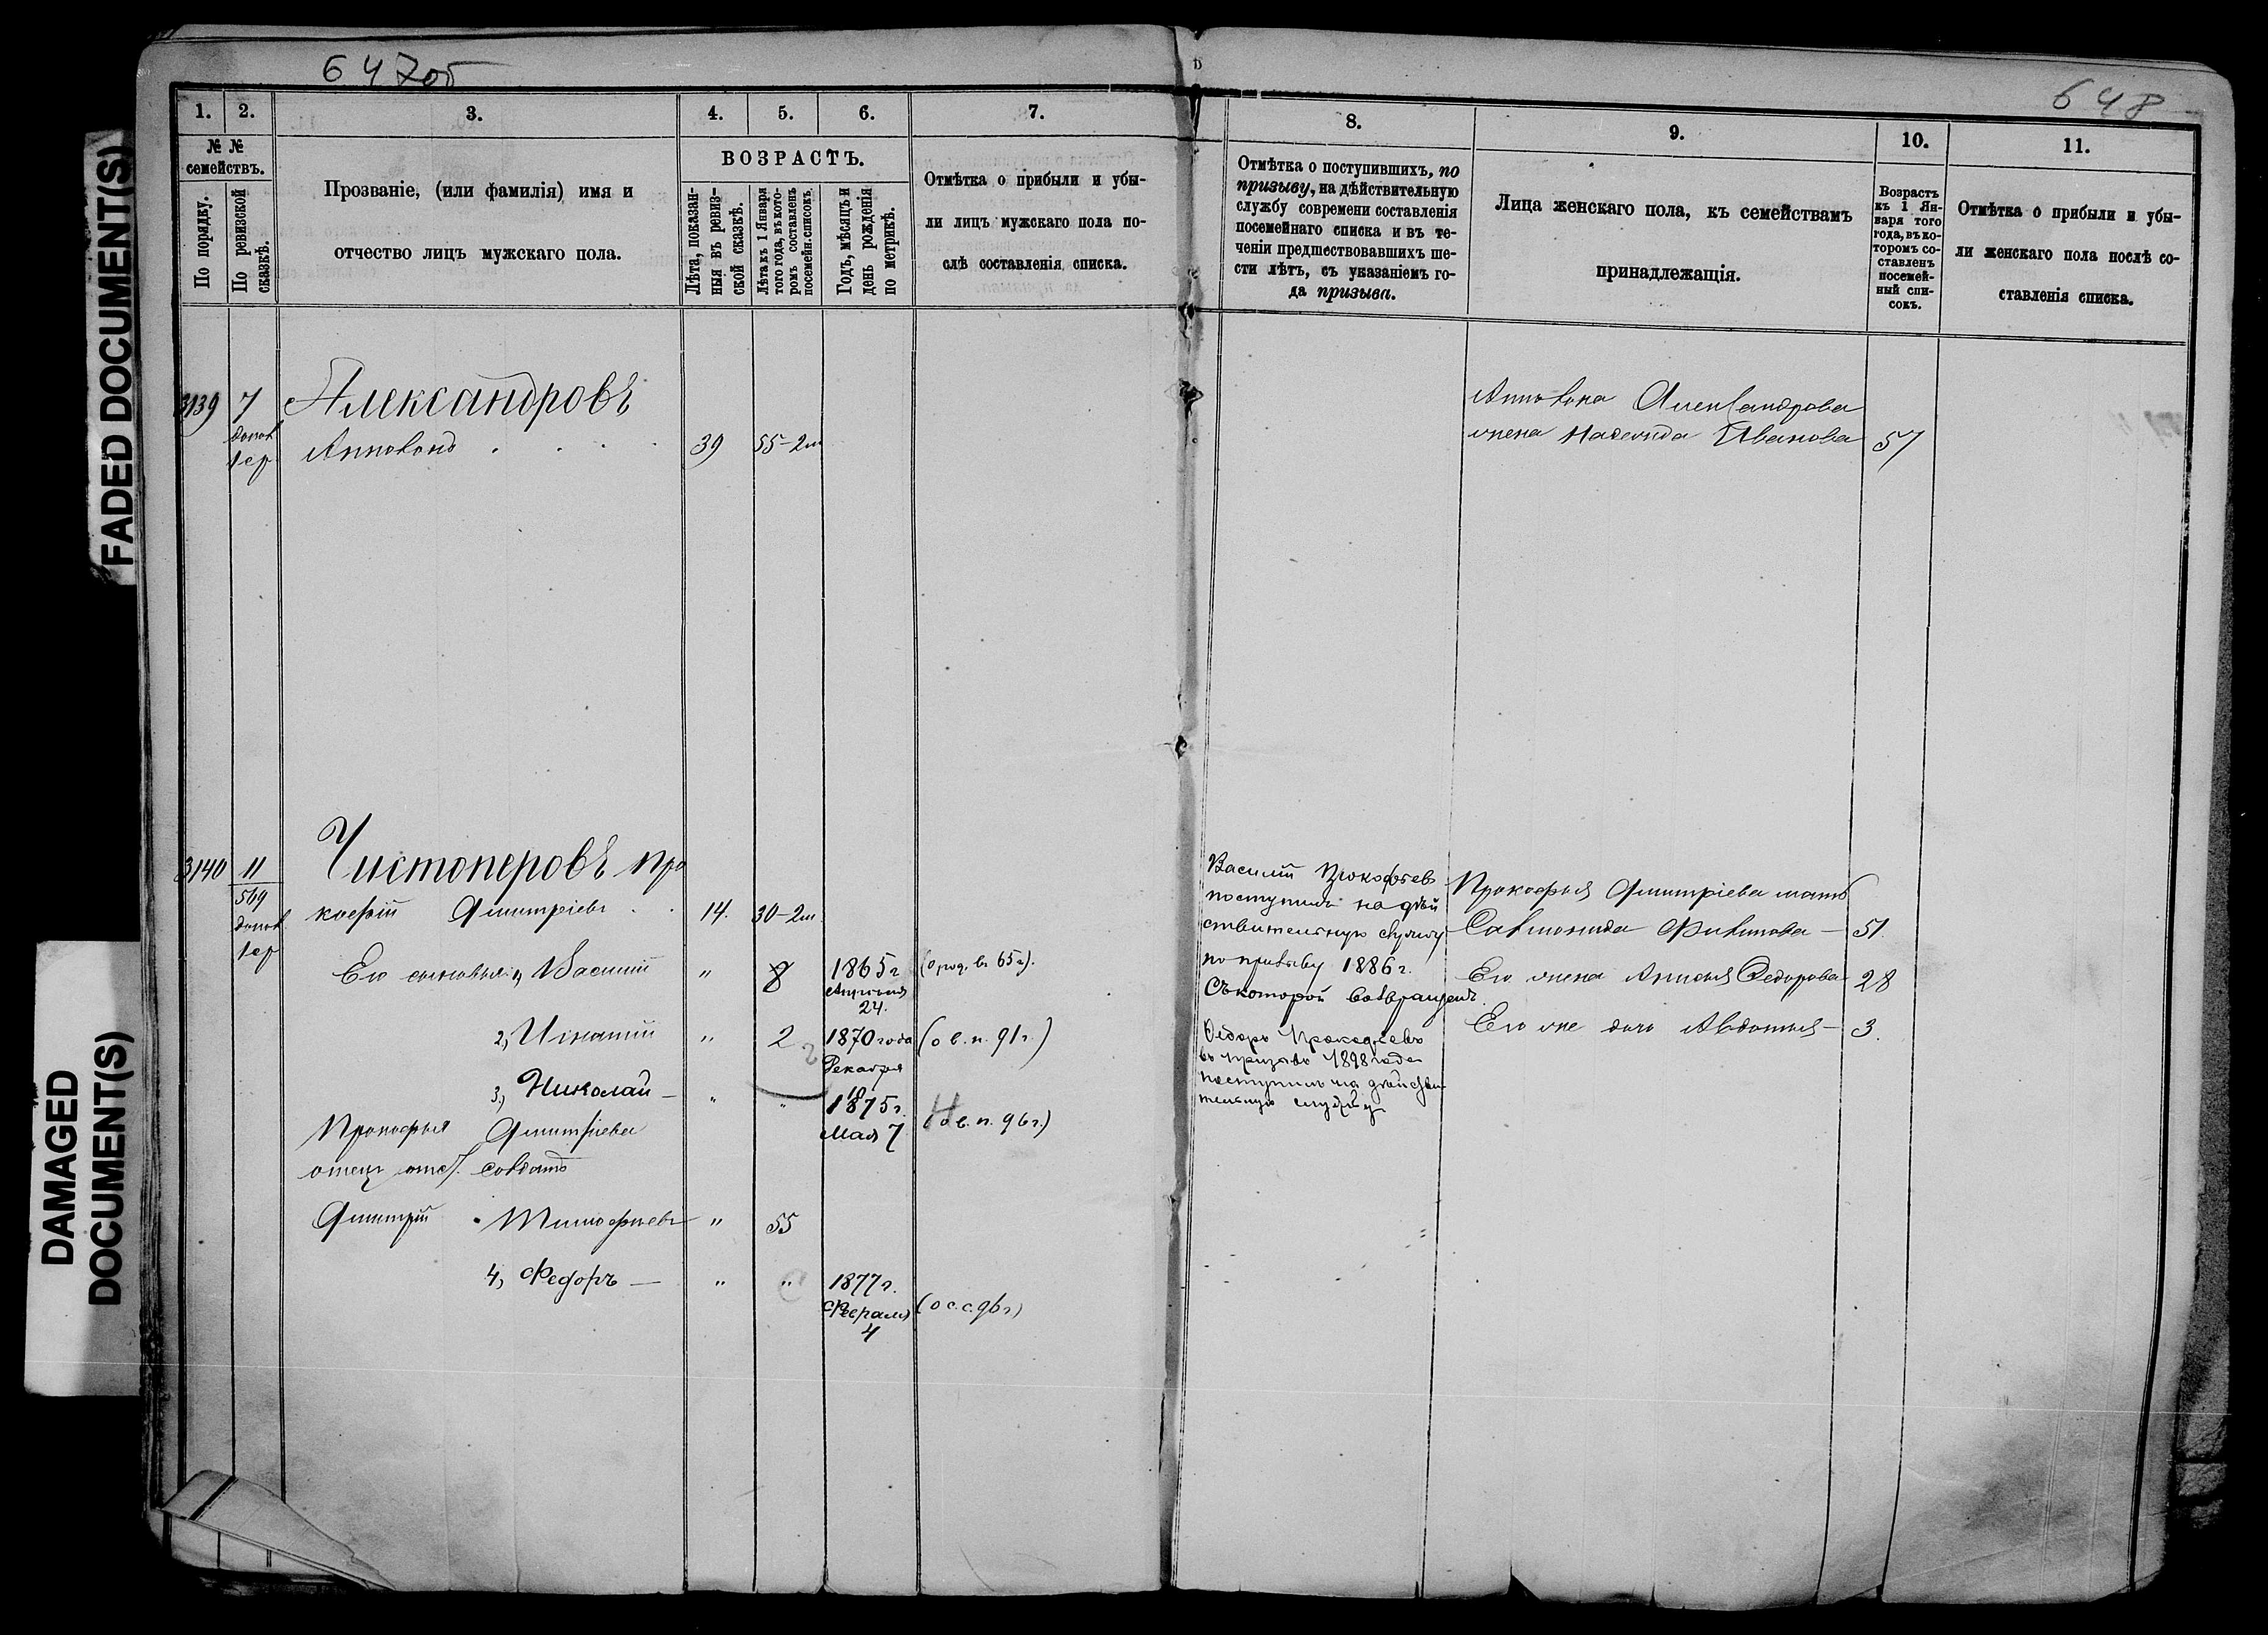 FADED DOCUMENT(S)
DAMAGED
DOCUMENT(S)
647об
1. 2. 3. 4. 5. 6. 7.
№ №
семействъ.
По порядку.
По ревизской
сказкѣ.
Прозваніе, (или фамилія) имя и
отчество лицъ мужскаго пола.
ВОЗРАСТЪ.
Лѣта, показан-
ныя въ ревиз-
ской сказкѣ.
Лѣта къ 1 Января
того года, въ кото-
ромъ составленъ
посемейн. списокъ.
Годъ, мѣсяцъ и
день рожденія
по метрикѣ.
Отмѣтка о прибыли и убы-
ли лицъ мужскаго пола по-
слѣ составленія списка.
3139 7 Александровъ
допол
1 ср
39 55-2м
3140 11 Чистоперовъ Про
569
кофій Дмитріевъ 14. 30-2м
допол
1 ср
Его сыновья: 1, Василій " 8 1865 г (о род. въ 65 г).
Апрѣля
24.
2, Игнатій " 2 1870 года (о в. п. 91 г.)
Декабря
18
3, Николай — " " 1875 г.
Мая 7 (о в. п. 96 г.)
Прокофья Дмитріева
отецъ отс. солдатъ
Дмитрій Тимофѣевъ " 55
4, Федоръ — " " 1877 г.
Февраля (о с. с. 96 г)
4
648
8. 9. 10. 11.
Отмѣтка о поступившихъ, по
призыву, на дѣйствительную
службу современи составленія
посемейнаго списка и въ те-
ченіи предшествовавшихъ ше-
сти лѣтъ, съ указаніемъ го-
да призыва.
Лица женскаго пола, къ семействамъ
принадлежащія.
Возрастъ
къ 1 Ян-
варя того
года, въ ко-
торомъ со-
ставленъ
посемей-
ный спи-
сокъ.
Отмѣтка о прибыли и убы-
ли женскаго пола послѣ со-
ставленія списка.
Александрова
жена Надежда Иванова 57
Василій Прокофьевъ
поступилъ на дѣй
ствительную службу
по призыву 1886 г.
Съ которой возвращенъ.
Федоръ Прокофьевъ
въ призывъ 1898 года
поступилъ на дѣйстви-
тельную службу
Прокофья Дмитріева мать
Филипова — 51.
Его жена Анисья Федорова 28
Его же дочь Авдотья — 3.